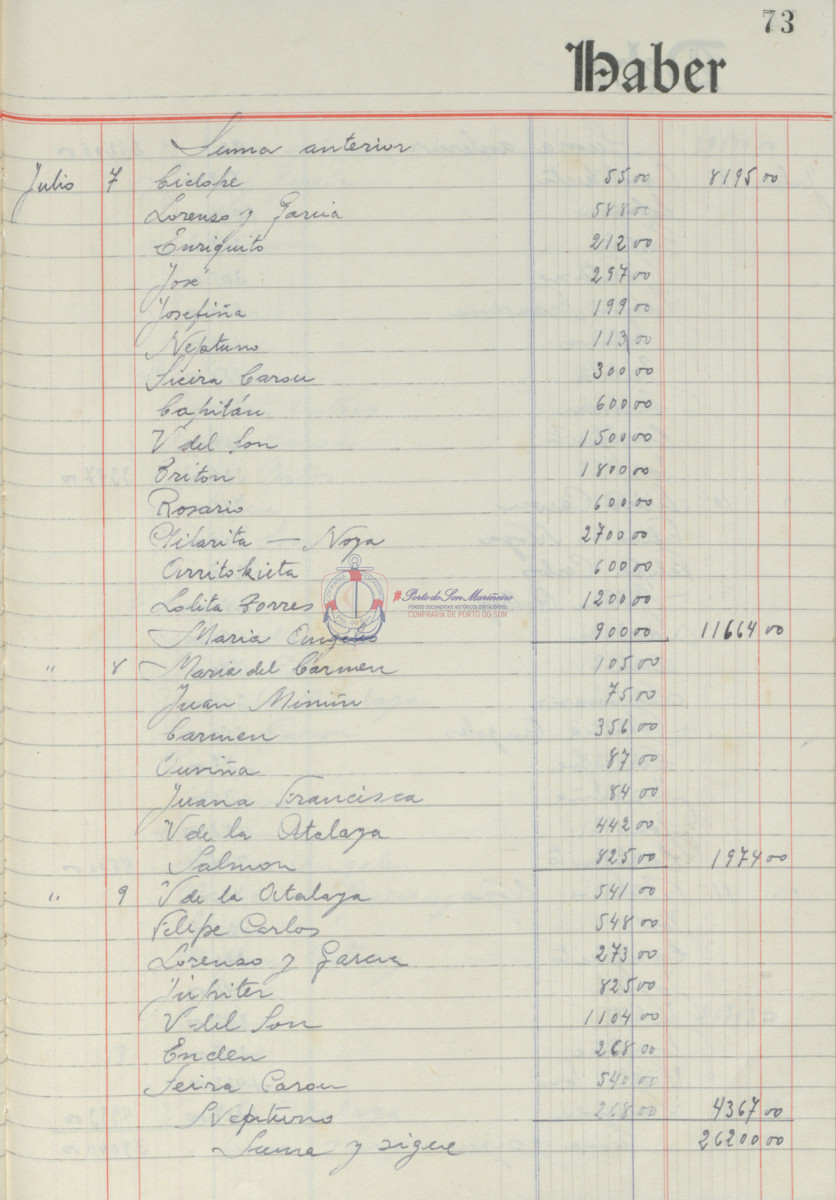 73
Haber
Suma anterior
Julio 7 Ciclope 55 00 8195 00
Lorenso y Garcia 588 00
Enriquito 212 00
José 297 00
Josefiña 199 00
Neptuno 113 00
Sieira Carou 300 00
Capitán 600 00
V del Son 1500 00
Briton 1800 00
Rosario 600 00
Hilarita — Noya 2700 00
Arritokieta 600 00
Lolita Torres 1200 00
#Porto do Son Mariñeiro
FONDOS DOCUMENTAIS HISTÓRICOS DIXITALIZADOS
CONFRARÍA DE PORTO DO SON
Maria Angeles 900 00 11664 00
" 8 Maria del Carmen 105 00
Juan Miniñ 75 00
Carmen 356 00
Ouviña 87 00
Juana Francisca 84 00
V de la Atalaya 442 00
Salmon 825 00 1974 00
" 9 V de la Atalaya 541 00
Felipe Carlos 548 00
Lorenso y Garcia 273 00
Júpiter 825 00
V del Son 1104 00
Enden 268 00
Seira Carou 540 00
Neptuno 268 00 4367 00
Suma y sigue 26200 00